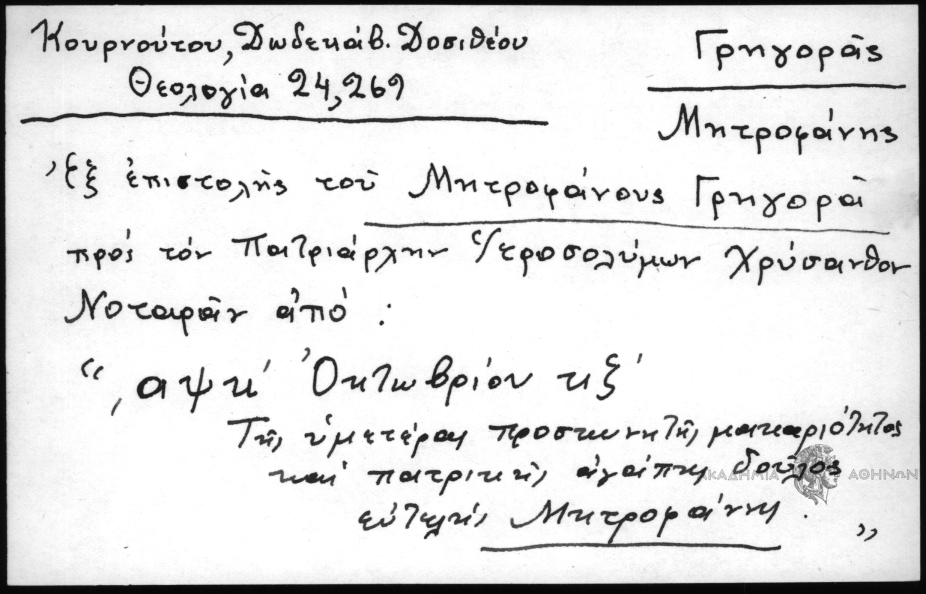 Κουρνούτου, Δωδεκάβ. Δοσιθέου
Θεολογία 24, 269
Γρηγορᾶς
Μητροφάνης
Ἐξ ἐπιστολῆς τοῦ Μητροφάνους Γρηγορᾶ
πρός τόν Πατριάρχην Ἱεροσολύμων Χρύσανθον
Νοταρᾶν ἀπό :
“ ,αψκ΄ Ὀκτωβρίου κξ΄
Τῆς ὑμετέρας προσκυνητῆς μακαριότητος
καί πατρικῆς ἀγάπης δοῦλος
εὐτελής Μητροφάνης . ”
ΑΚΑΔΗΜΙΑ ΑΘΗΝΩΝ